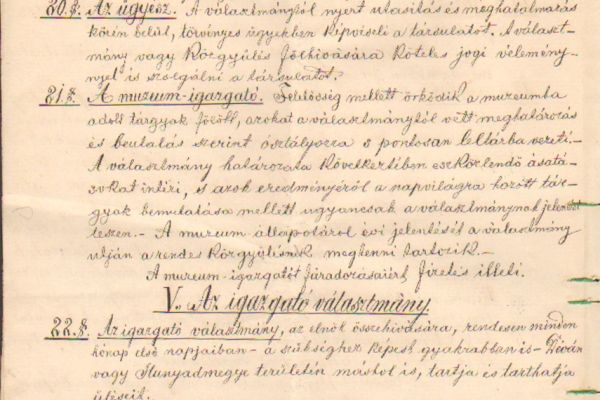 20. §. Az ügyész. A választmánytól nyert utasitás és meghatalmazás
körén belül, törvényes ügyekben képviseli a társulatot. A választ-
mány vagy Közgyülés fölhivására köteles jogi vélemény-
nyel is szolgálni a társulatot.
21. §. A muzeum-igazgató. Felelősség mellett őrködik a muzeumba
adott tárgyak fölött, azokat a választmánytól vett meghatározás
és beutalás szerint osztályozza s pontosan leltárba vezeti.-
A választmány határozata következtében eszközlendő ásatá-
sokat intézi, s azok eredményéről a napvilágra hozott tár-
gyak bemutatása mellett ugyancsak a választmánynak jelentést
teszen.- A muzeum állapotáról évi jelentését a választmány
utján a rendes közgyülésnek megtenni tartozik.-
A muzeum-igazgatót fáradozásaiért fizetés illeti.
V. Az igazgató választmány.
22. §. Az igazgató választmány, az elnök összehivására, rendesen minden
hónap első napjaiban - a szükséghez képest gyakrabban is - Déván
vagy Hunyadmegye területén máshol is, tartja és tarthatja
üléseit.